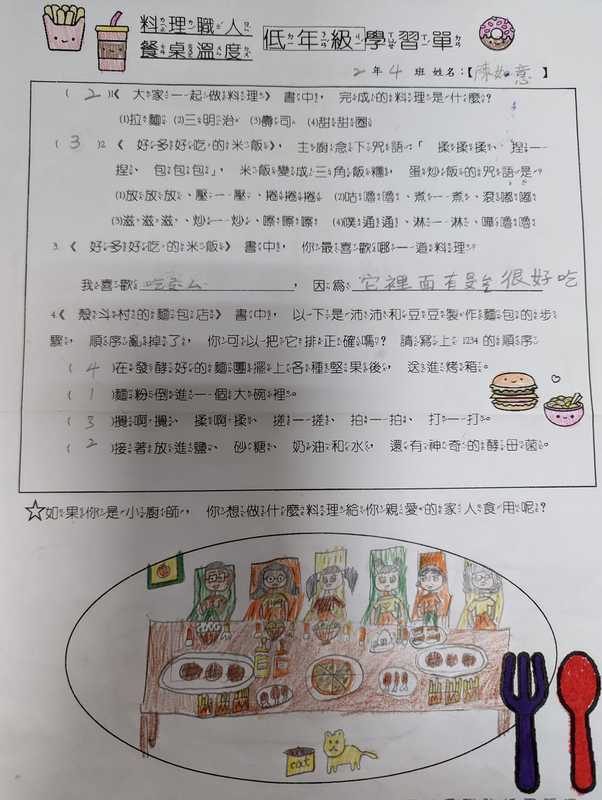 料理職人
餐桌溫度
低年級學習單
2年4班 姓名:【陳如意】
(2)1.《大家一起做料理》書中，完成的料理是什麼?
(1)拉麵 (2)三明治 (3)壽司 (4)甜甜圈
(3)2.《好多好吃的米飯》，主廚念下咒語「揉揉揉、捏一
捏、包包包」，米飯變成三角飯糰，蛋炒飯的咒語是
(1)放放放、壓一壓、捲捲捲 (2)咕嚕嚕、煮一煮、滾嘟嘟
(3)滋滋滋、炒一炒、嚓嚓嚓 (4)噗通通、淋一淋、嘩嚕嚕
3.《好多好吃的米飯》書中，你最喜歡哪一道料理
我喜歡，因為它裡面有 很好吃
4.《殼斗村的麵包店》書中，以下是沛沛和豆豆製作麵包的步
驟，順序亂掉了，你可以把它排正確嗎? 請寫上1234的順序
(4)在發酵好的麵團擺上各種堅果後，送進烤箱。
(1)麵粉倒進一個大碗裡。
(3)攪啊攪、揉啊揉、搓一搓、拍一拍、打一打。
(2)接著放進鹽、砂糖、奶油和水，還有神奇的酵母菌。
☆如果你是小廚師，你想做什麼料理給你親愛的家人食用呢?
cat